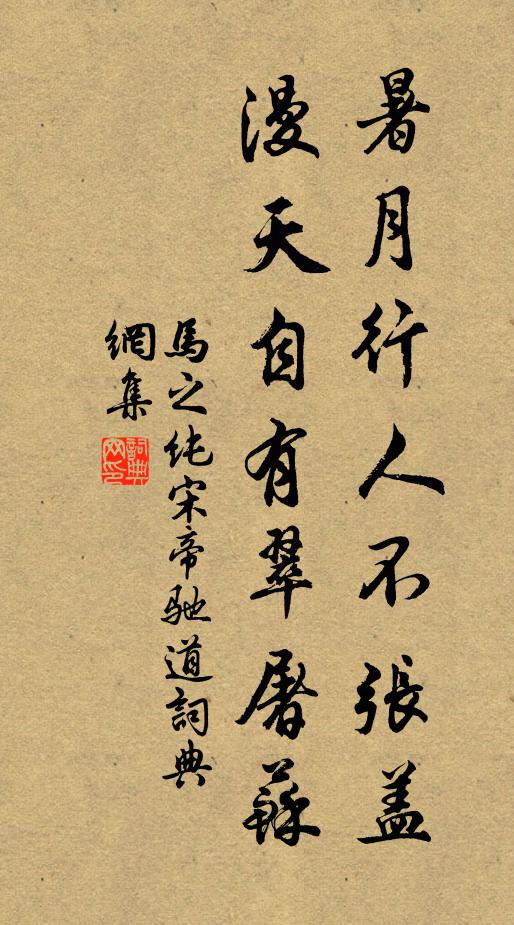 暑月行人不張盖
漫天自有翠屠蘇
馬之純宋帝馳道詞典
網集
詞典
网印